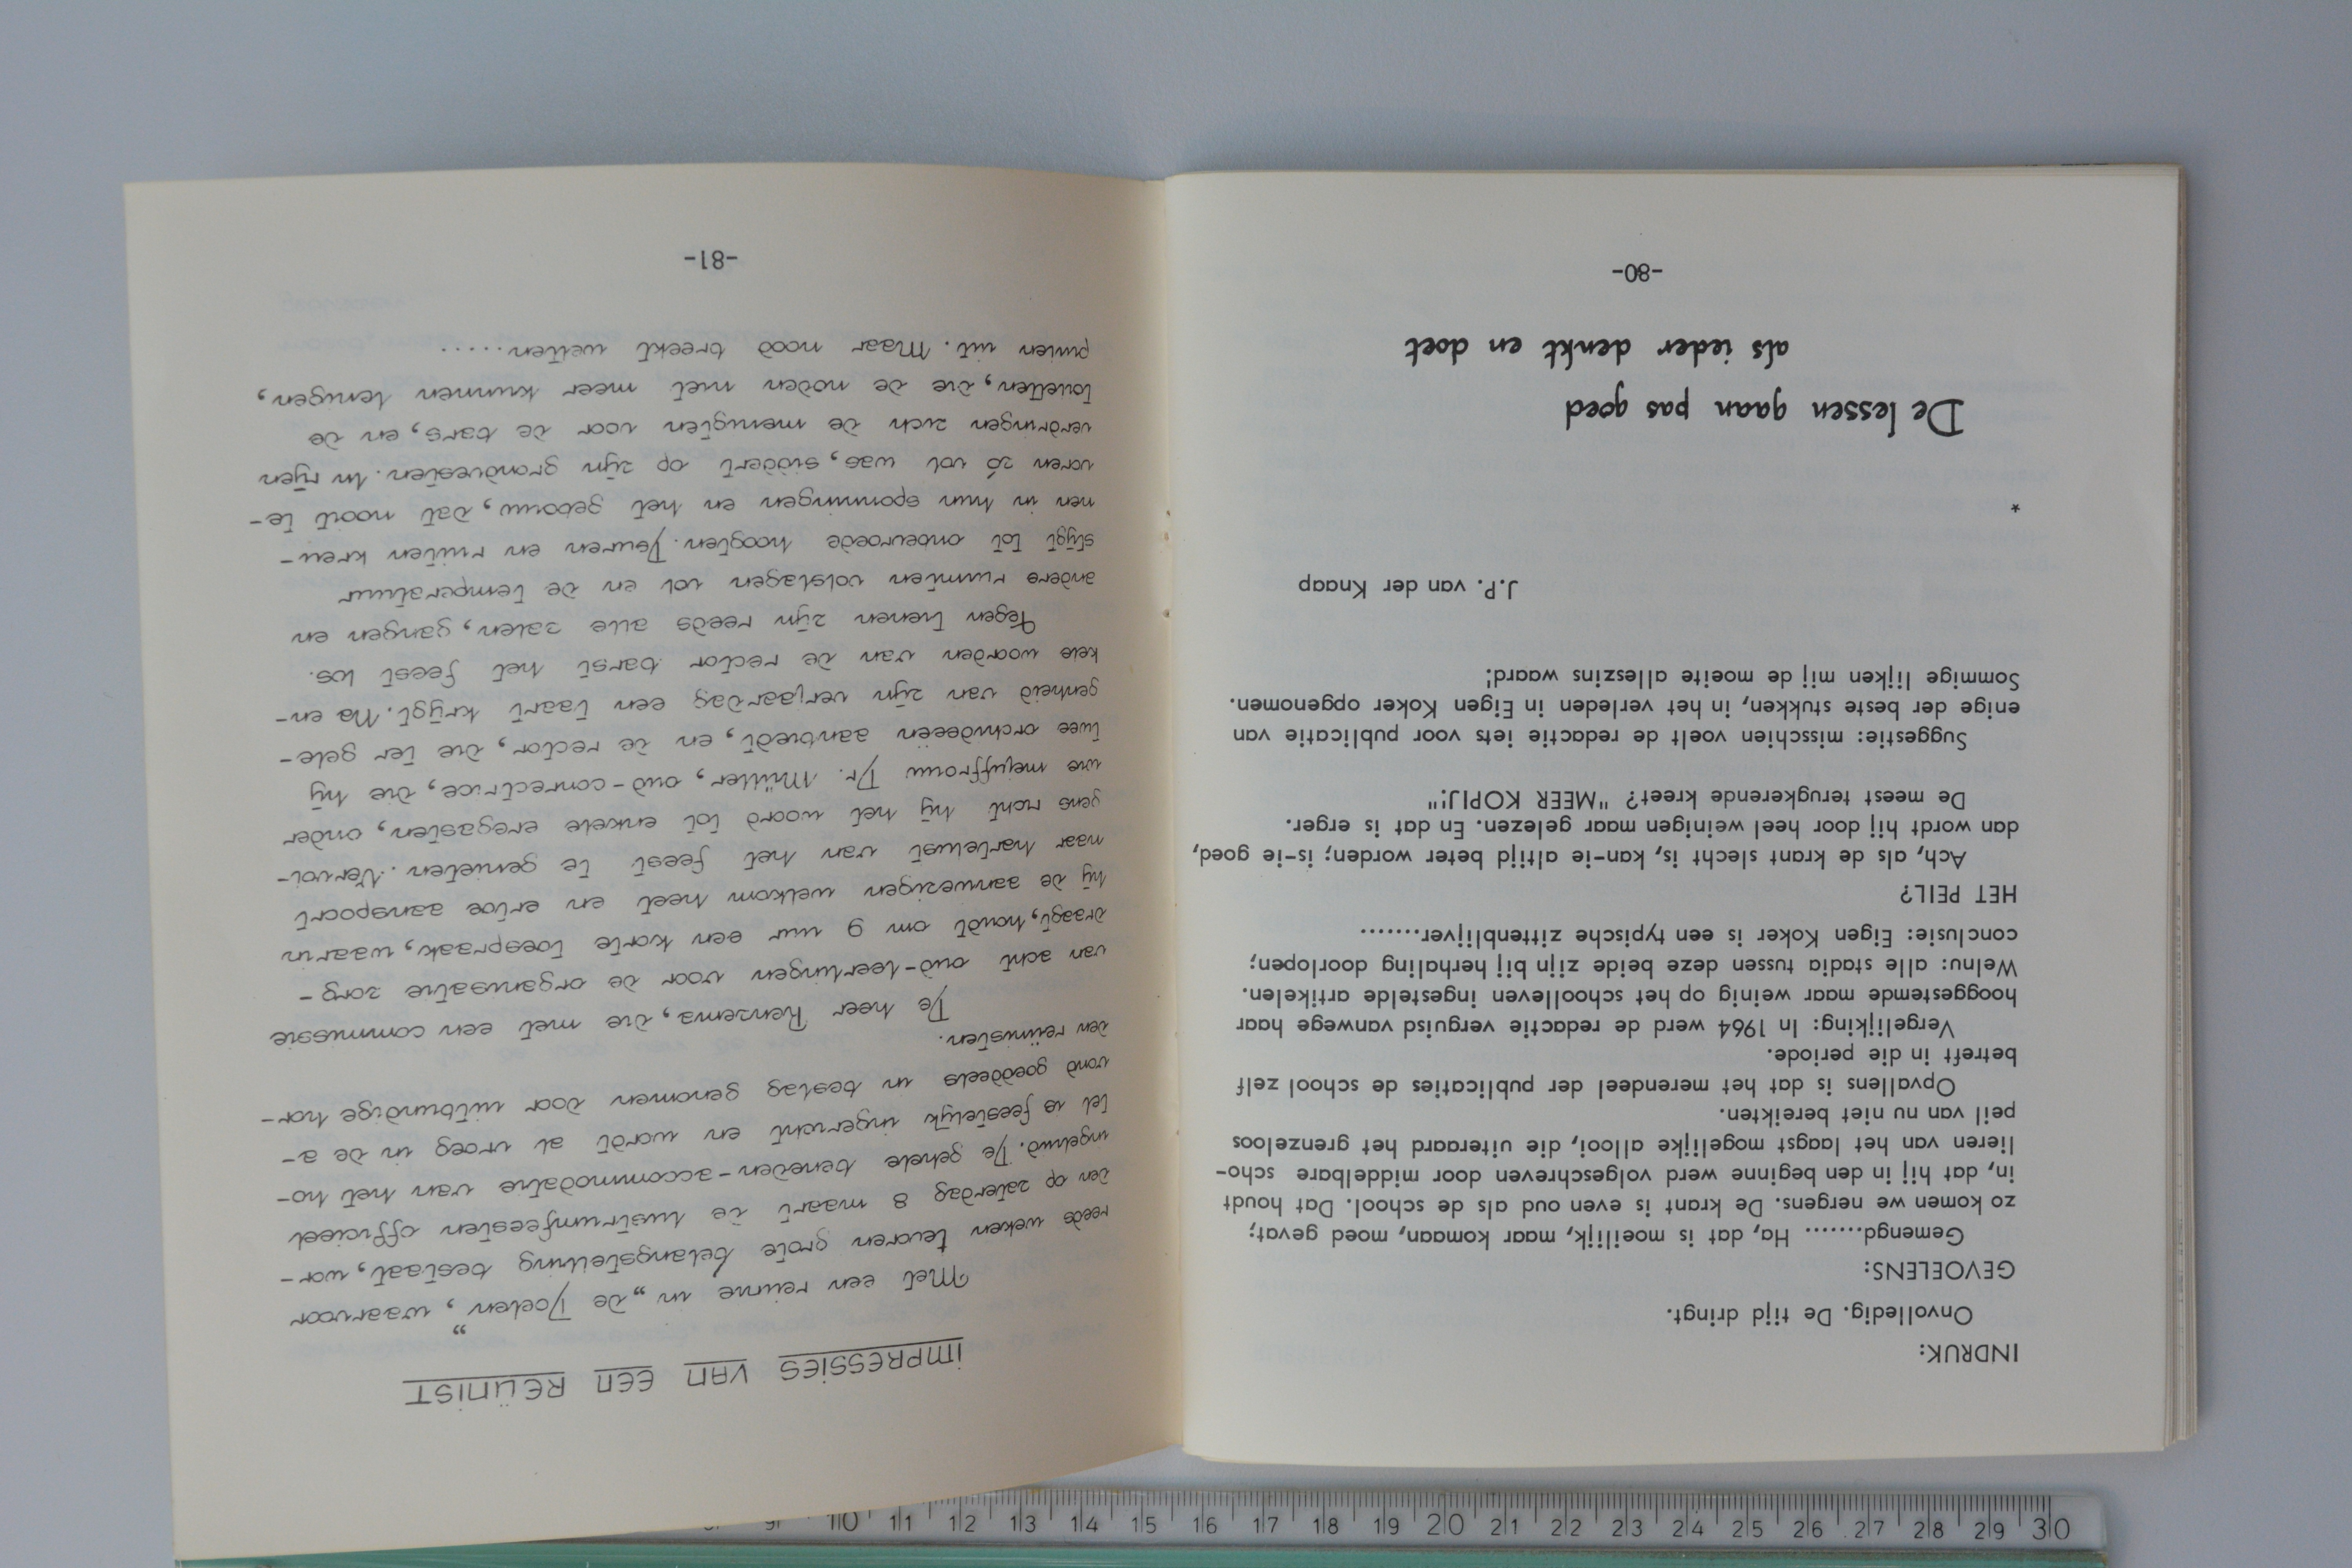 INDRUK:
Onvolledig. De tijd dringt.
GEVOELENS:
Gemengd....... Ha, dat is moeilijk, maar komaan, moed gevat;
zo komen we nergens. De krant is even oud als de school. Dat houdt
in, dat hij in den beginne werd volgeschreven door middelbare scho-
lieren van het laagst mogelijke allooi, die uiteraard het grenzeloos
peil van nu niet bereikten.
Opvallens is dat het merendeel der publicaties de school zelf
betreft in die periode.
Vergelijking: In 1964 werd de redactie verguisd vanwege haar
hooggestemde maar weinig op het schoolleven ingestelde artikelen.
Welnu: alle stadia tussen deze beide zijn bij herhaling doorlopen;
conclusie: Eigen Koker is een typische zittenblijver.......
HET PEIL?
Ach, als de krant slecht is, kan-ie altijd beter worden; is-ie goed,
dan wordt hij door heel weinigen maar gelezen. En dat is erger.
De meest terugkerende kreet? "MEER KOPIJ!"
Suggestie: misschien voelt de redactie iets voor publicatie van
enige der beste stukken, in het verleden in Eigen Koker opgenomen.
Sommige lijken mij de moeite alleszins waard!
J.P. van der Knaap
*
De lessen gaan pas goed
als ieder denkt en doet
-80-
IMPRESSIES VAN EEN REÜNIST
Met een reünie in „de Doelen”, waarvoor
reeds weken tevoren grote belangstelling bestaat, wor-
den op zaterdag 8 maart de lustrumfeesten officieel
ingeluid. De gehele beneden-accommodatie van het ho-
tel is feestelijk ingericht en wordt al vroeg in de a-
vond goeddeels in beslag genomen door uitbundige hor-
den reünisten.
De heer Renzema, die met een commissie
van acht oud-leerlingen voor de organisatie zorg-
draagt, houdt om 9 uur een korte toespraak, waarin
hij de aanwezigen welkom heet en ertoe aanspoort
naar hartelust van het feest te genieten. Vervol-
gens richt hij het woord tot enkele eregasten, onder
wie mejuffrouw Dr. Müller, oud-conrectrice, die hij
twee orchideeën aanbiedt, en de rector, die ter gele-
genheid van zijn verjaardag een taart krijgt. Na en-
kele woorden van de rector barst het feest los.
Tegen tienen zijn reeds alle zalen, gangen en
andere ruimten volslagen vol en de temperatuur
stijgt tot onbevroede hoogten. Deuren en ruiten kreu-
nen in hun sponningen en het gebouw, dat nooit te-
voren zó vol was, siddert op zijn grondvesten. In rijen
verdringen zich de menigten voor de bars, en de
toiletten, die de noden niet meer kunnen lenigen,
puilen uit. Maar nood breekt wetten.....
-81-
10 11 12 13 14 15 16 17 18 19 20 21 22 23 24 25 26 27 28 29 30